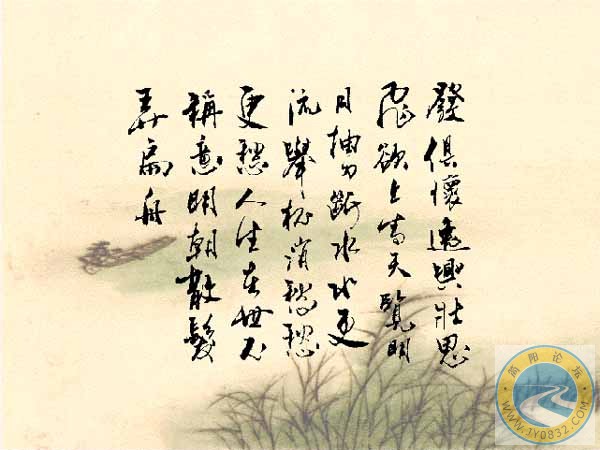 發俱懷逸興壯思
飛欲上青天覽明
月抽刀斷水水更
流舉杯消愁愁
更愁人生在世不
稱意明朝散髮
弄扁舟
简阳论坛
WWW.JY0832.COM